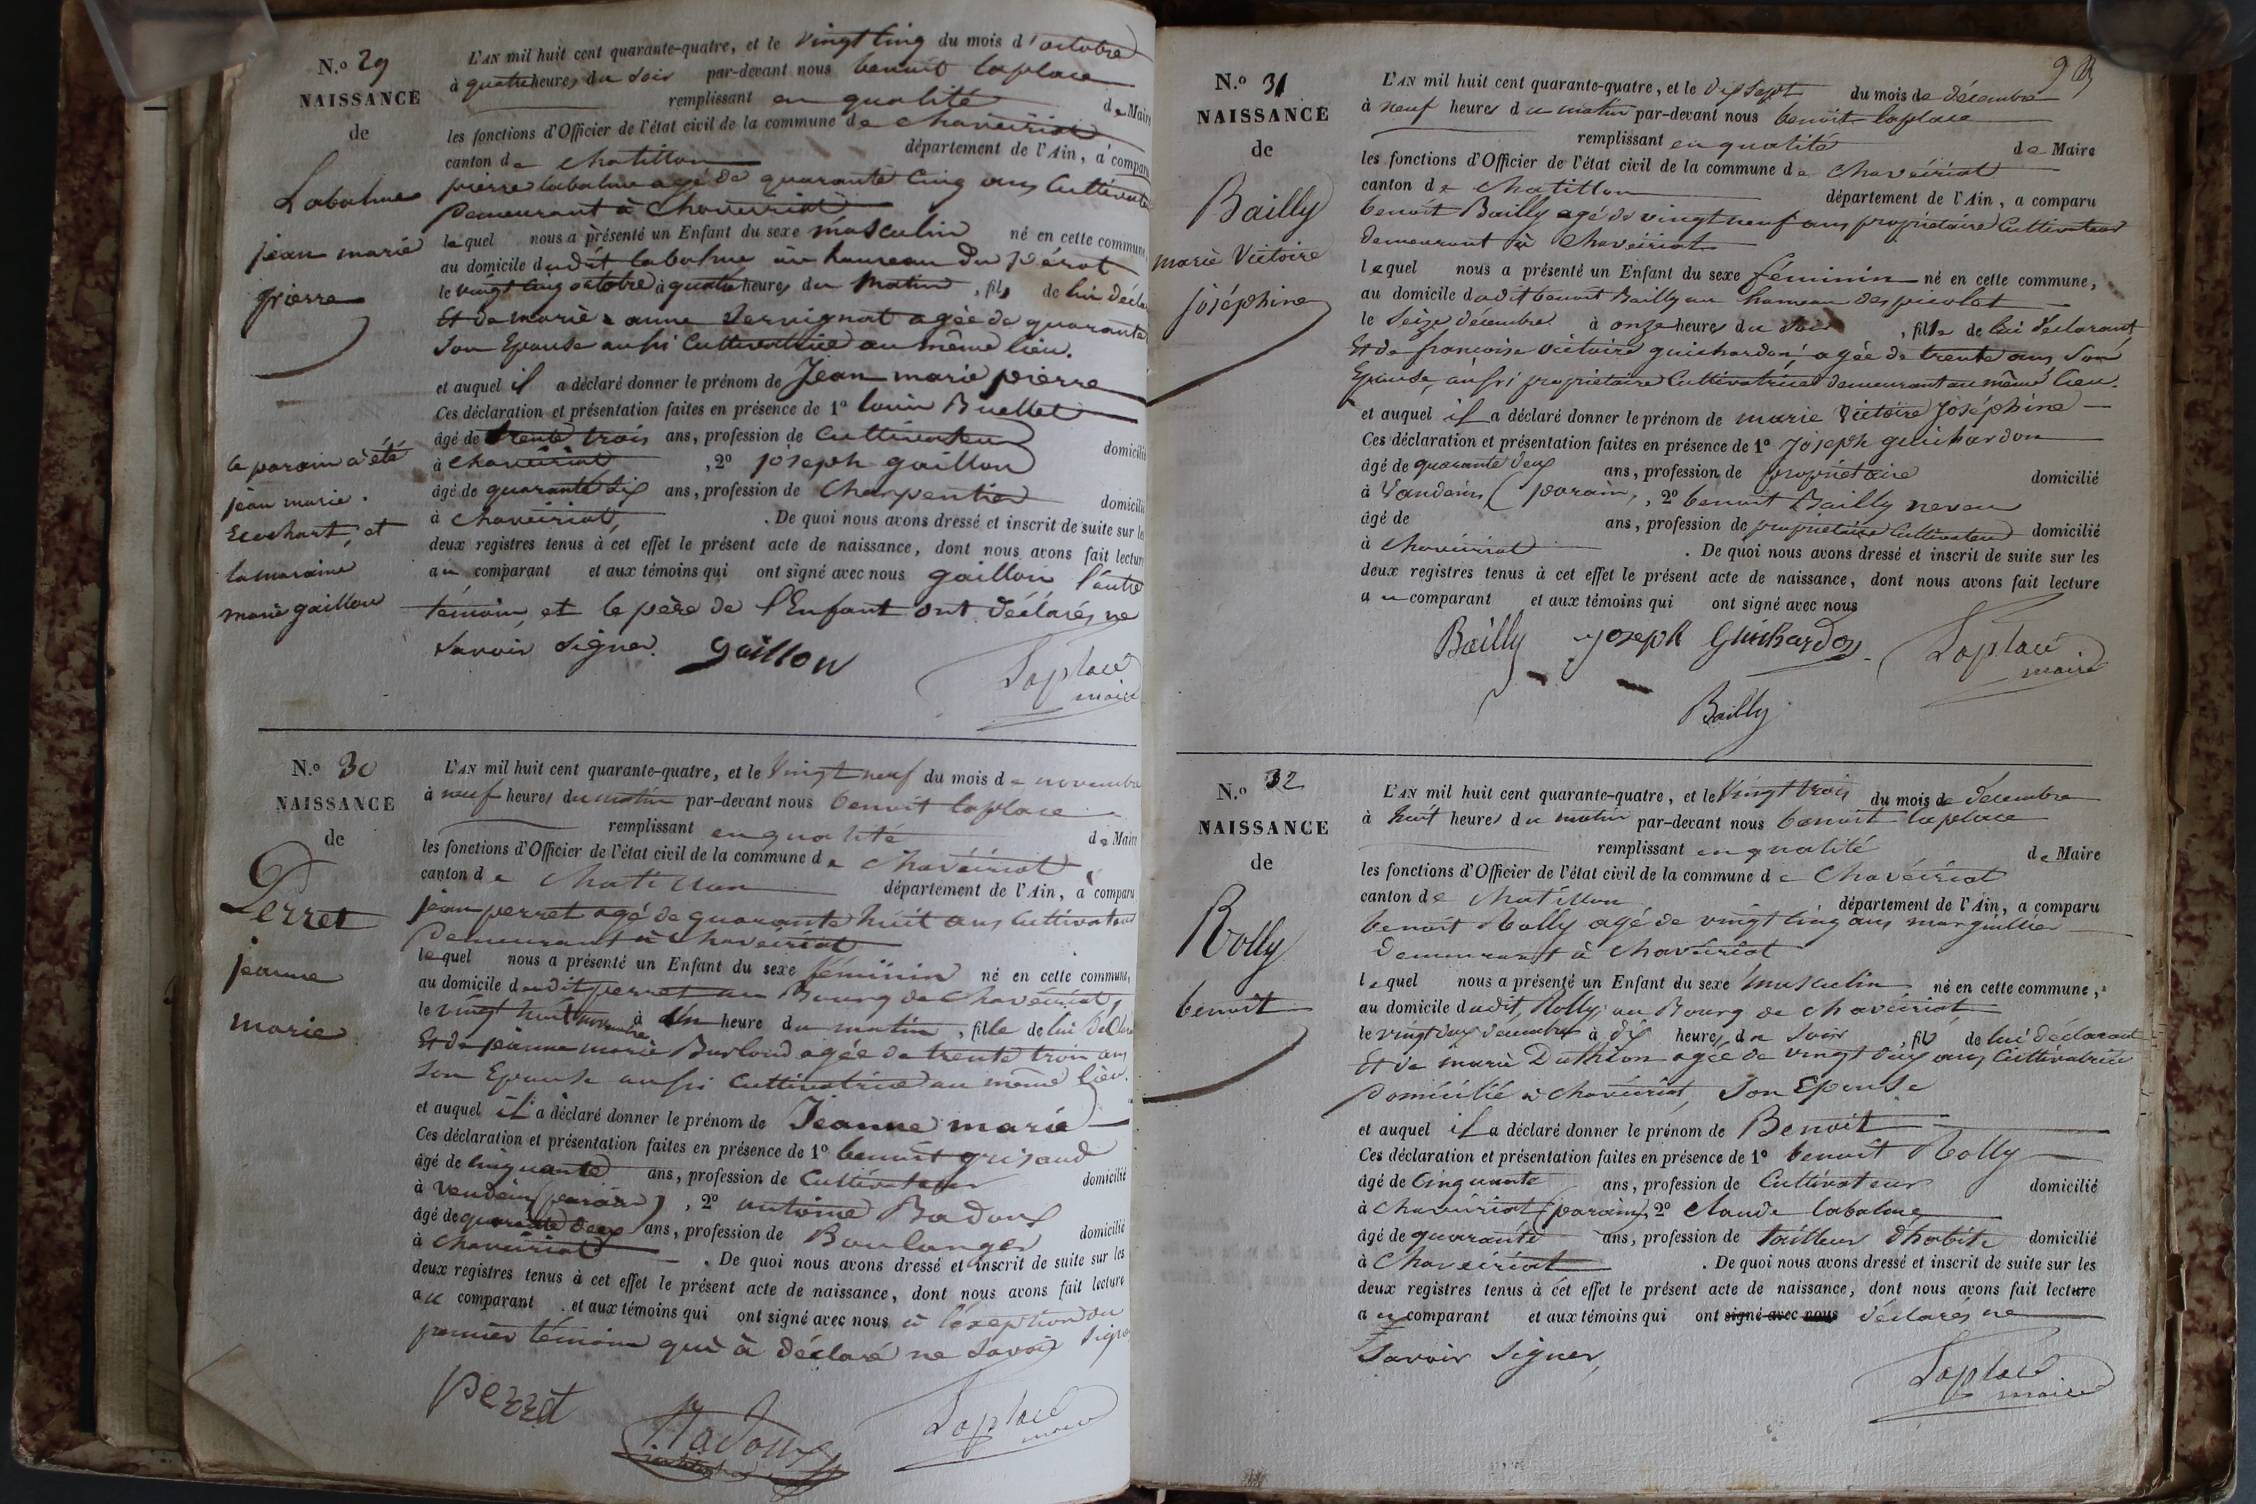 N.o 29
NAISSANCE
de
Labalme
jean marie
pierre
le parain a été
jean marie
Ecochart, et
la maraine
marie gaillon
L'AN mil huit cent quarante-quatre, et le vingt cinq du mois d'octobre
à quatre heures du soir par-devant nous benoit laplace
remplissant en qualité de Maire
les fonctions d'Officier de l'état civil de la commune de chaveiriat
canton de chatillon département de l'Ain, a comparu
pierre labalme agé de quarante cinq ans Cultivateur
Demeurant à Chaveiriat
lequel nous a présenté un Enfant du sexe masculin né en cette commune,
au domicile dudit labalme au hameau du pérat
le vingt cinq octobre à quatre heures du matin, fils de lui décla
Et de marie anne Servignat agée de quarante
Son Epouse aussi Cultivatrice au même lieu.
et auquel il a déclaré donner le prénom de Jean marie pierre
Ces déclaration et présentation faites en présence de 1o louis Buellet
âgé de trente trois ans, profession de cultivateur domicilié
à chaveiriat, 2o joseph gaillon
âgé de quarante six ans, profession de Charpentier domicilié
à chaveiriat, . De quoi nous avons dressé et inscrit de suite sur les
deux registres tenus à cet effet le présent acte de naissance, dont nous avons fait lecture
au comparant et aux témoins qui ont signé avec nous gaillon l'autre
témoin, et le père de l'Enfant ont déclarés ne
savoir signer. gaillon
Laplace
maire
N.o 30
NAISSANCE
de
Perret
jeanne
marie
L'AN mil huit cent quarante-quatre, et le Vingt neuf du mois de novembre
à neuf heures du matin par-devant nous benoit laplace
remplissant en qualité de Maire
les fonctions d'Officier de l'état civil de la commune de chavéiriat
canton de chatillon département de l'Ain, a comparu
jean perret agé de quarante huit ans Cultivateur
Demeurant à chaveiriat
lequel nous a présenté un Enfant du sexe féminin né en cette commune,
au domicile dudit perret au Bourg de Chavéiriat
le vingt huit novembre à Un heure du matin, fille de lui Déclara
Et de jeanne marie Burloud agée de trente trois ans
Son Epouse aussi Cultivatrice au même lieu.
et auquel il a déclaré donner le prénom de Jeanne marie
Ces déclaration et présentation faites en présence de 1o benoit grisaud
âgé de cinquante ans, profession de Cultivateur domicilié
à Vendein (parain), 2o antoine Badoux
âgé de quarante deux ans, profession de Boulanger domicilié
à Chaveiriat . De quoi nous avons dressé et inscrit de suite sur les
deux registres tenus à cet effet le présent acte de naissance, dont nous avons fait lecture
au comparant et aux témoins qui ont signé avec nous à l'exception du
premier témoin qui à déclaré ne Savoir signer
perret
Badoux
Laplace
maire
N.o 31
NAISSANCE
de
Bailly
marie Victoire
joséphine
L'AN mil huit cent quarante-quatre, et le dix sept du mois de décembre
à neuf heures du matin par-devant nous benoit laplace
remplissant en qualité de Maire
les fonctions d'Officier de l'état civil de la commune de chavéiriat
canton de chatillon département de l'Ain, a comparu
benoit Bailly agé de vingt neuf ans propriétaire Cultivateur
demeurant à chavéiriat
lequel nous a présenté un Enfant du sexe féminin né en cette commune,
au domicile dudit benoit Bailly au hameau des picolet
le Seize décembre à onze heures du Soir, fille de lui déclarant
Et de francoise victoire guichardon agée de trente ans Son
Epouse, aussi propriétaire Cultivatrice demeurant au même lieu.
et auquel il a déclaré donner le prénom de marie Victoire Joséphine
Ces déclaration et présentation faites en présence de 1o joseph guichardon
âgé de quarante deux ans, profession de propriétaire domicilié
à Vandeins (parain), 2o benoit Bailly neveu
âgé de ans, profession de propriétaire Cultivateur domicilié
à chavéiriat . De quoi nous avons dressé et inscrit de suite sur les
deux registres tenus à cet effet le présent acte de naissance, dont nous avons fait lecture
au comparant et aux témoins qui ont signé avec nous
Bailly joseph Guichardon Laplace
maire
Bailly
N.o 32
NAISSANCE
de
Rolly
benoit
L'AN mil huit cent quarante-quatre, et le Vingt trois du mois de décembre
à huit heures du matin par-devant nous benoit laplace
remplissant en qualité de Maire
les fonctions d'Officier de l'état civil de la commune de Chavéiriat
canton de chatillon département de l'Ain, a comparu
benoit Rolly agé de vingt cinq ans marguillier
Demeurant à chavéiriat
lequel nous a présenté un Enfant du sexe masculin né en cette commune,
au domicile dudit, Rolly au Bourg de chavéiriat
le vingt deux décembre à dix heures du Soir, fils de lui déclarant
Et de marie Duthion agée de vingt deux ans Cultivatrice
Domicilié à chaveiriat, Son Epouse
et auquel il a déclaré donner le prénom de Benoit
Ces déclaration et présentation faites en présence de 1o benoit Rolly
âgé de Cinquante ans, profession de Cultivateur domicilié
à chavéiriat (parain), 2o claude labalme
âgé de quarante ans, profession de tailleur d'habits domicilié
à Chavéiriat . De quoi nous avons dressé et inscrit de suite sur les
deux registres tenus à cet effet le présent acte de naissance, dont nous avons fait lecture
au comparant et aux témoins qui ont signé avec nous déclarés ne
Savoir Signer,
Laplace
maire